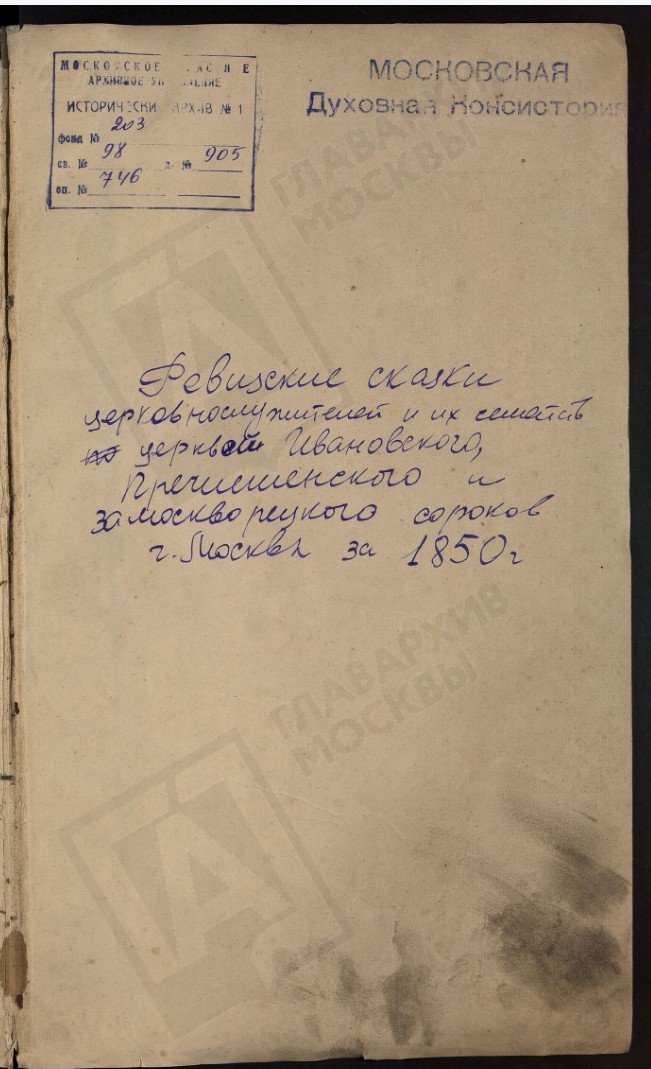 МОСКОВСКОЕ
АРХИВНОЕ
ИСТОРИЧЕСКИ АРХИВ № 1
фонд № 203
св. № 98 д. № 905
оп. № 746
МОСКОВСКАЯ
Духовная Консистория
Ревизские сказки
церковнослужителей и их семейств
церквей Ивановского,
Пречистенского и
Замоскворецкого сороков
г. Москвы за 1850 г
ГЛАВАРХИВ
МОСКВЫ
ГЛАВАРХИВ
МОСКВЫ